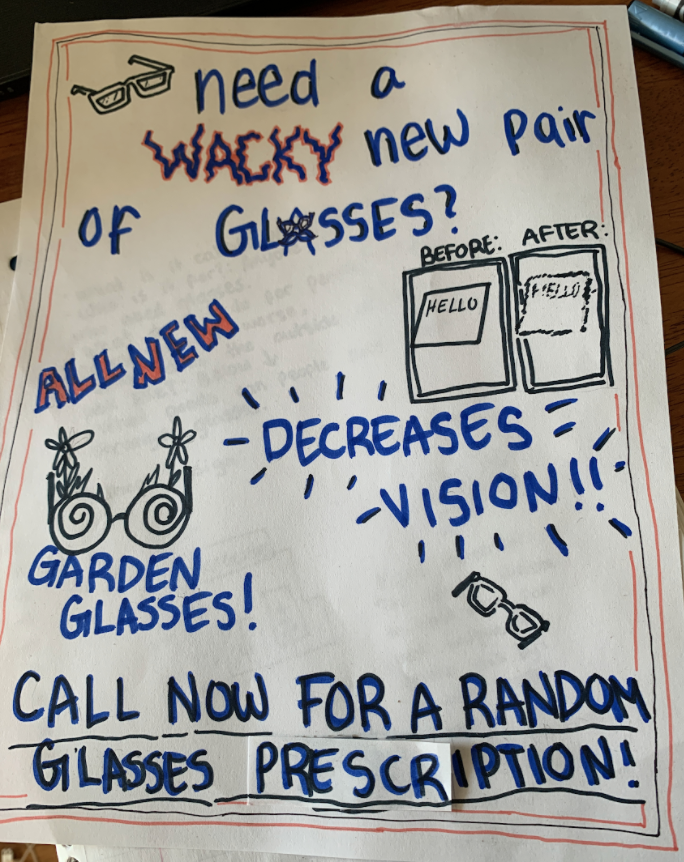 need a
WACKY new pair
OF GLASSES?
BEFORE: AFTER:
HELLO HELLO
ALL NEW
DECREASES
VISION!!
GARDEN
GLASSES!
CALL NOW FOR A RANDOM
GLASSES PRESCRIPTION!